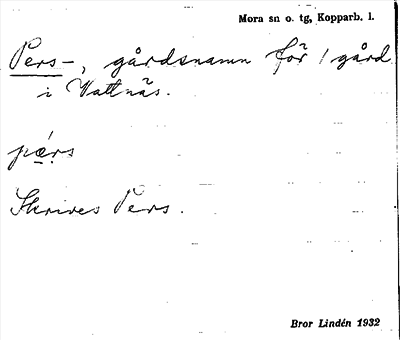 Mora sn o. tg, Kopparb. l.
Pers-, gårdsnamn för 1 gård
i Vattnäs.
pǽ̣rs
Skrives Pers.
Bror Lindén 1932